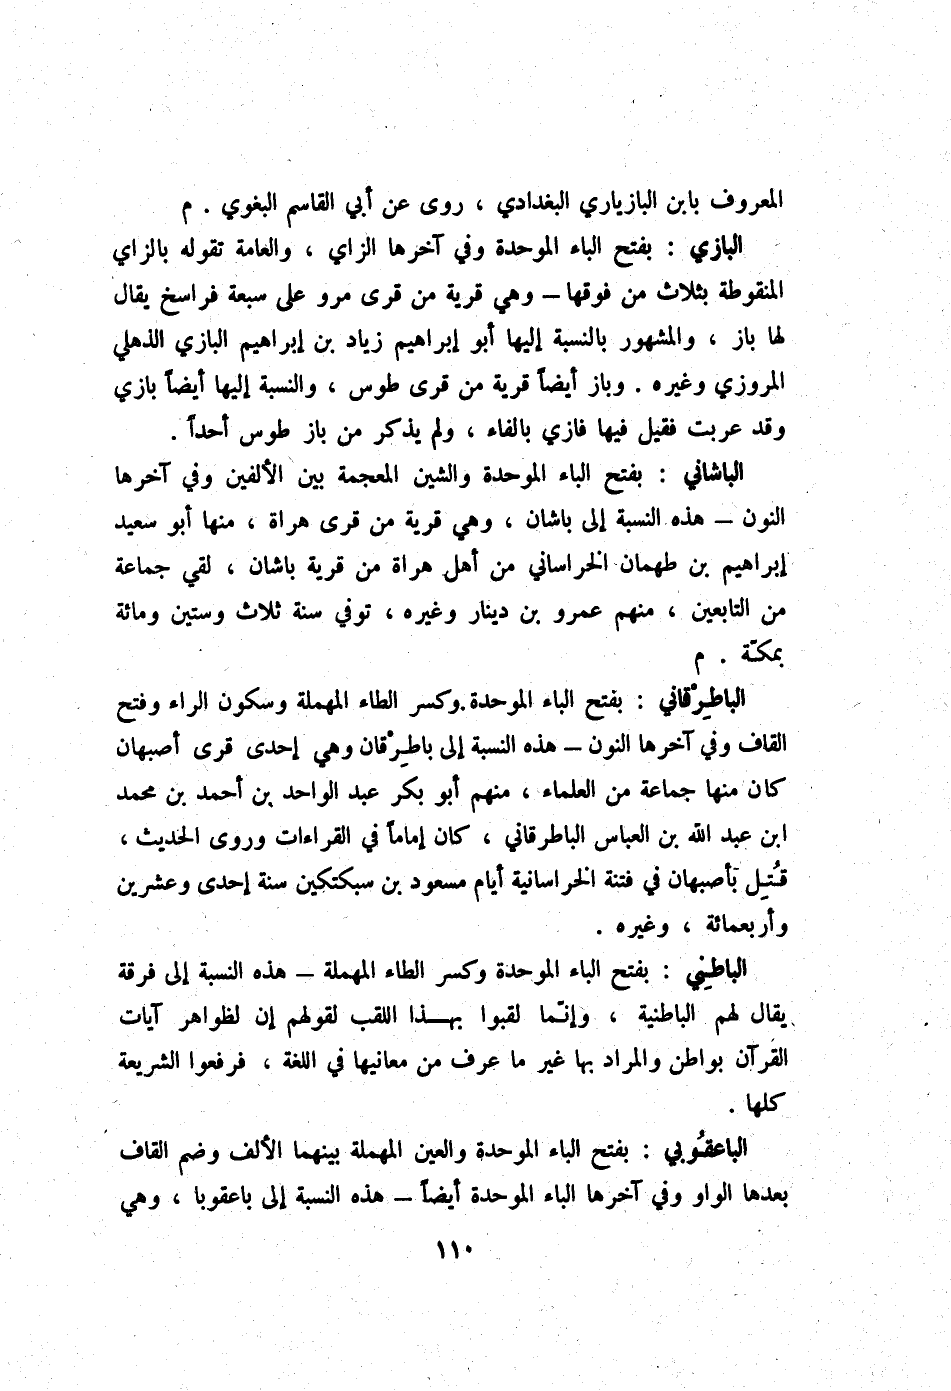 المعروف بابن البازياري البغدادي ، روى عن أبي القاسم البغوي . م
البازي : بفتح الباء الموحدة وفي آخرها الزاي ، والعامة تقوله بالزاي
المنقوطة بثلاث من فوقها – وهي قرية من قرى مرو على سبعة فراسخ يقال
لها باز ، والمشهور بالنسبة إليها أبو إبراهيم زياد بن إبراهيم البازي الذهلي
المروزي وغيره . وباز أيضاً قرية من قرى طوس ، والنسبة إليها أيضاً بازي
وقد عربت فقيل فيها فازي بالفاء ، ولم يذكر من باز طوس أحداً .
الباشاني : بفتح الباء الموحدة والشين المعجمة بين الألفين وفي آخرها
النون – هذه النسبة إلى باشان ، وهي قرية من قرى هراة ، منها أبو سعيد
إبراهيم بن طهمان الخراساني من أهل هراة من قرية باشان ، لقي جماعة
من التابعين ، منهم عمرو بن دينار وغيره ، توفي سنة ثلاث وستين ومائة
بمكّة . م
الباطِرْقاني : بفتح الباء الموحدة وكسر الطاء المهملة وسكون الراء وفتح
القاف وفي آخرها النون – هذه النسبة إلى باطِرْقان وهي إحدى قرى أصبهان
كان منها جماعة من العلماء ، منهم أبو بكر عبد الواحد بن أحمد بن محمد
ابن عبد الله بن العباس الباطرقاني ، كان إماماً في القراءات وروى الحديث ،
قُتِل بأصبهان في فتنة الخراسانية أيام مسعود بن سبكتكين سنة إحدى وعشرين
وأربعمائة ، وغيره .
الباطِني : بفتح الباء الموحدة وكسر الطاء المهملة – هذه النسبة إلى فرقة
يقال لهم الباطنية ، وإنّما لقبوا بهذا اللقب لقولهم إن لظواهر آيات
القرآن بواطن والمراد بها غير ما عرف من معانيها في اللغة ، فرفعوا الشريعة
كلها .
الباعقُوبي : بفتح الباء الموحدة والعين المهملة بينهما الألف وضم القاف
بعدها الواو وفي آخرها الباء الموحدة أيضاً – هذه النسبة إلى باعقوبا ، وهي
١١٠